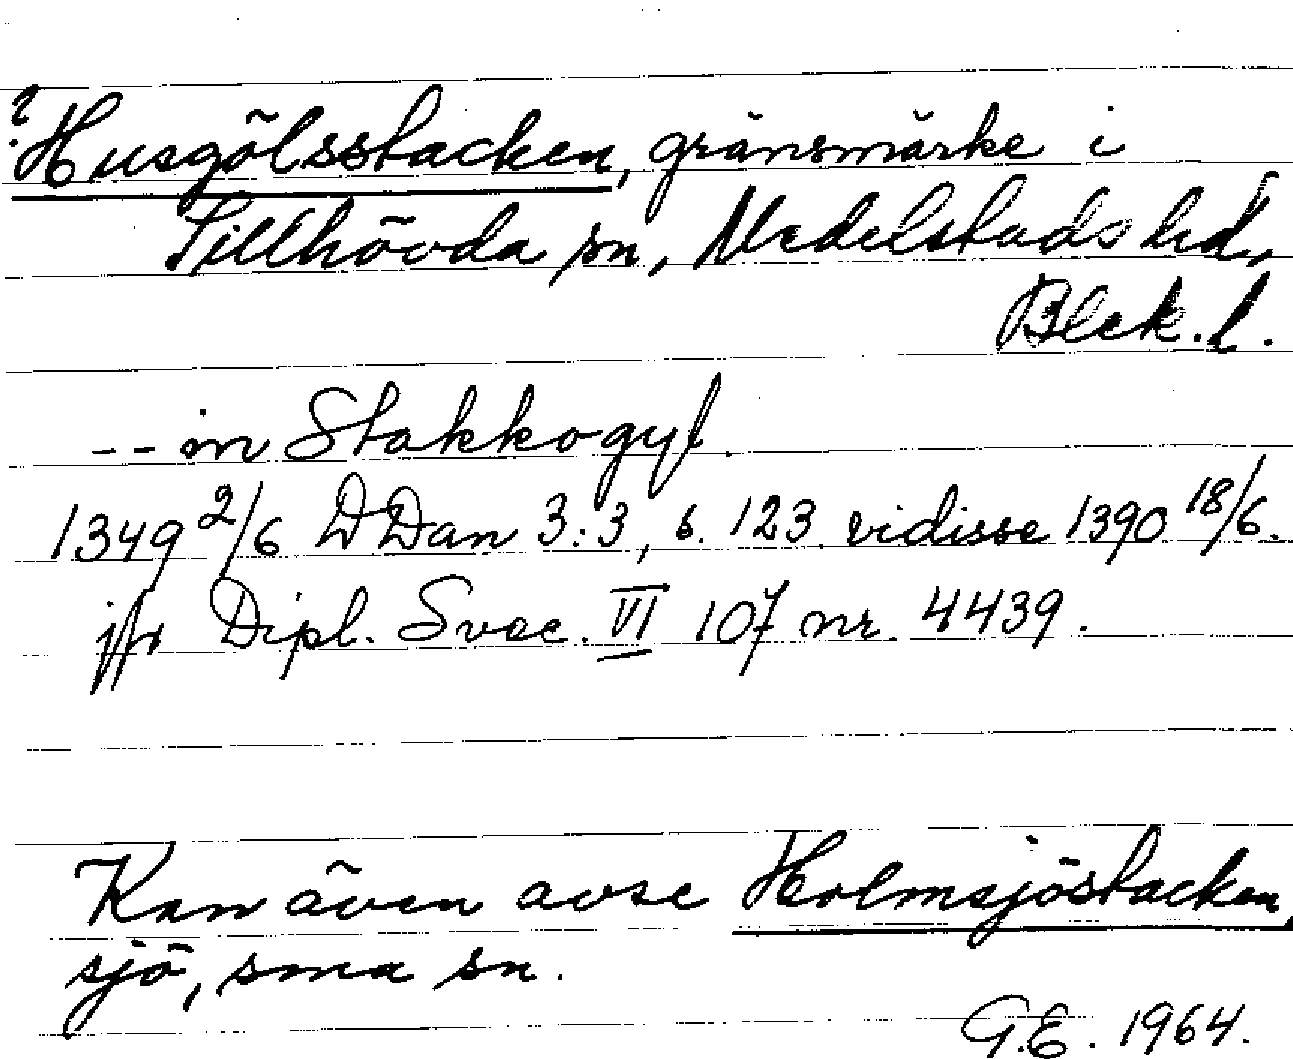 ? Husgölsstacken, gränsmärke i
Tillhövda sn, Medelstads hd,
Blek. l.
-- in Stakkogyl
1349 2/6 DDan 3:3, s. 123 vidisse 1390 18/6.
jfr Dipl. Svec. VI 107 nr 4439.
Kan även avse Holmsjöstacken,
sjö, sma sn.
G.E. 1964.